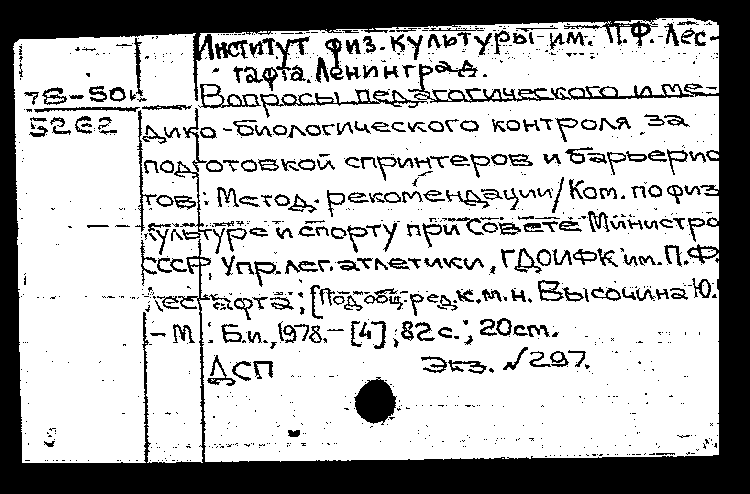 Институт физ. культуры им. П.Ф. Лес-
гафта. Ленинград.
78-50к Вопросы педагогического и ме-
5262 дико-биологического контроля за
подготовкой спринтеров и барьерис
тов: Метод. рекомендации/Ком. по физ
культуре и спорту при Совете Министро
СССР, Упр. лег. атлетики, ГДОИФК им. П.Ф.
Лесгафта; [Под общ. ред. к.м.н. Высочина Ю.
- М.: Б.и., 1978. - [4], 82 с.; 20 см.
ДСП Экз. № 297.